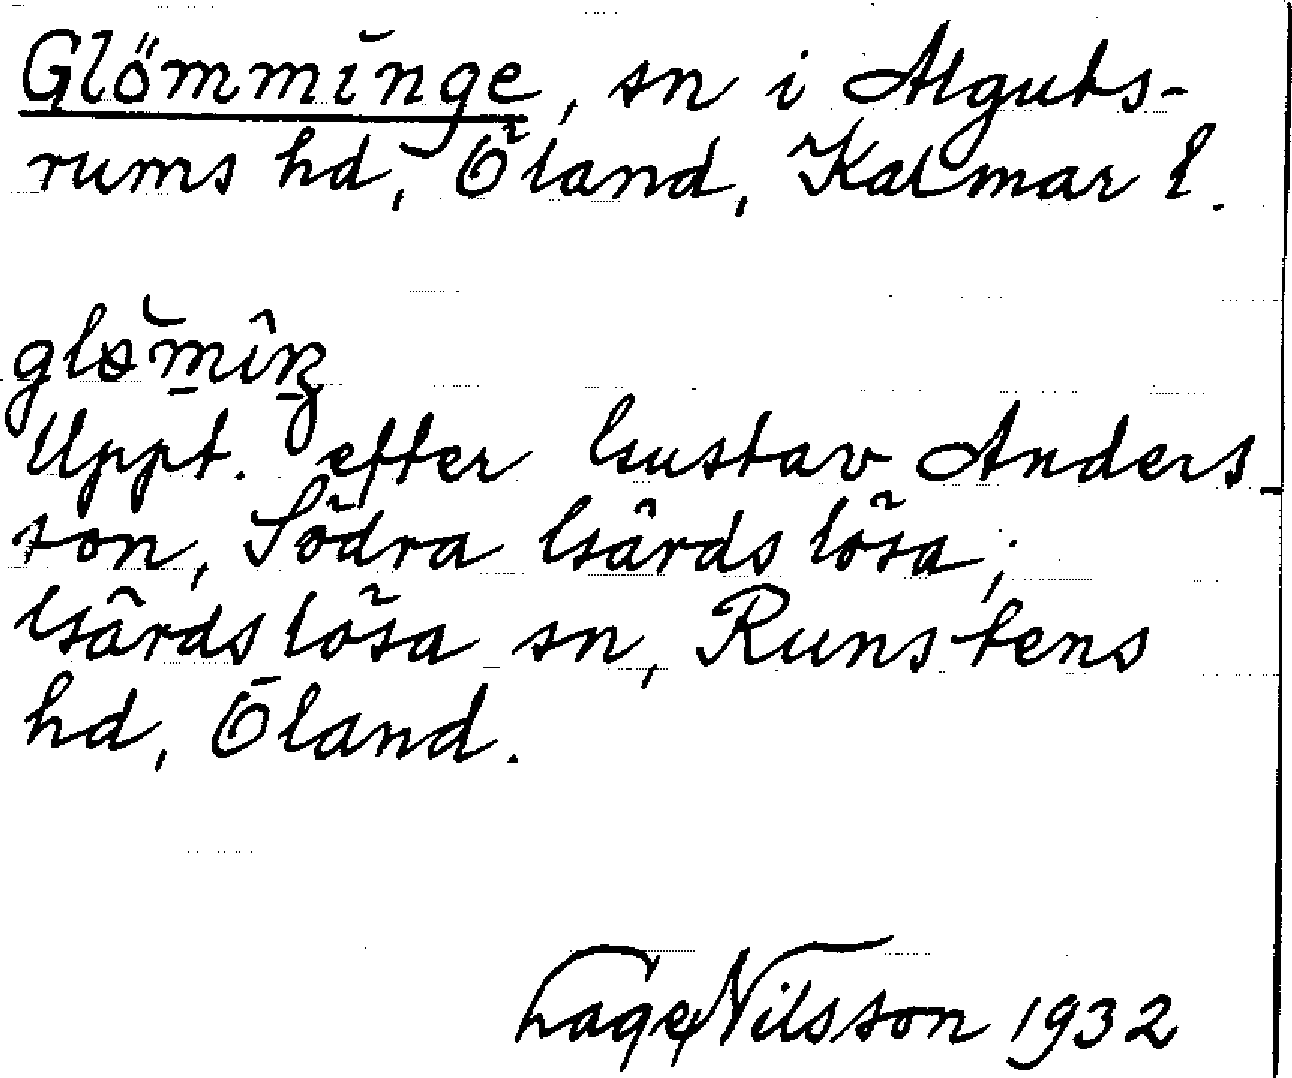 Glömminge, sn i Alguts-
rums hd, Öland, Kalmar l.
Uppt. efter Gustav Anders-
son, Södra Gärdslösa,
Gärdslösa sn, Runstens
hd, Öland.
Tage Nilsson 1932